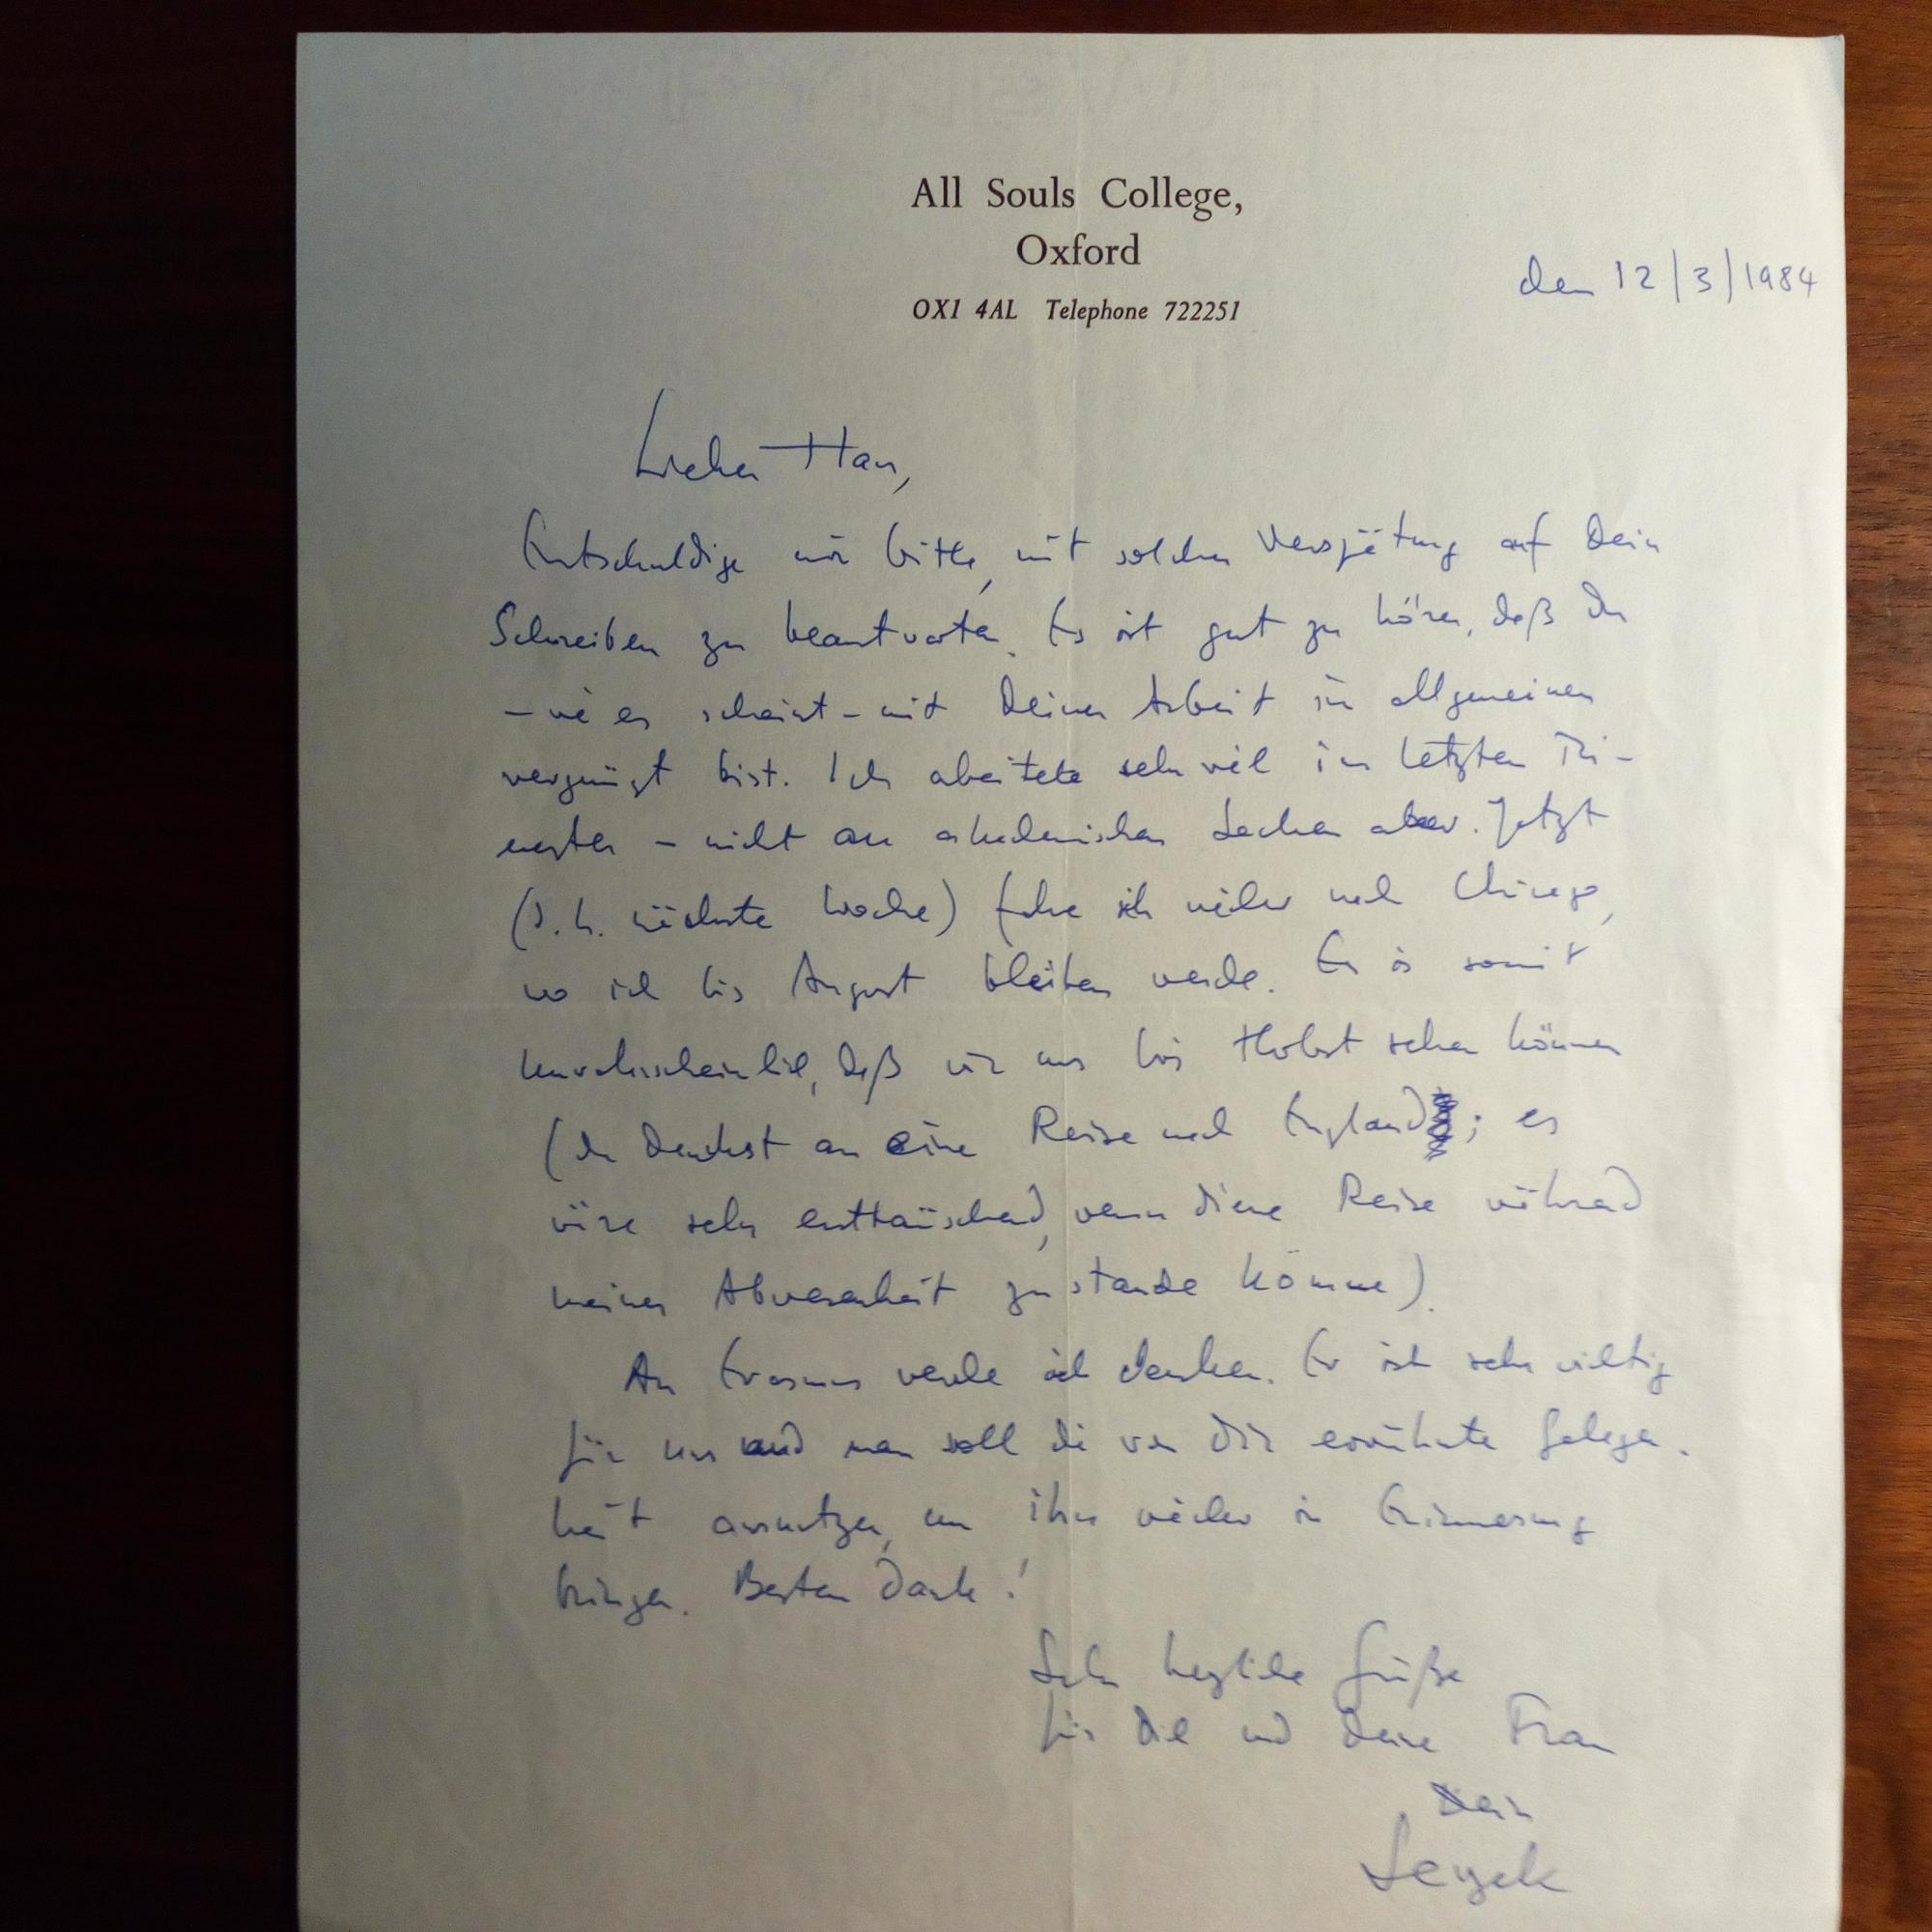 All Souls College,
Oxford
OX1 4AL Telephone 722251
den 12/3/1984
Lieber Han,
Entschuldige mir bitte, mit solcher Verspätung auf Dein
Schreiben zu beantworten. Es ist gut zu hören, daß Du
– wie es scheint – mit Deiner Arbeit im allgemeinen
vergnügt bist. Ich arbeitete sehr viel im letzten Tri-
mester – nicht an akademischen Sachen aber. Jetzt
(d.h. nächste Woche) fahre ich wieder nach Chicago,
wo ich bis August bleiben werde. Es is somit
unwahrscheinlich, daß wir uns bis Herbst sehen können
(Du denkst an eine Reise nach England; es
wäre sehr enttäuschend, wenn diese Reise während
meiner Abwesenheit zustande komme).
An Erasmus werde ich denken. Er ist sehr wichtig
für uns und man soll die von Dir erwähnte Gelegen-
heit ausnutzen, um ihn wieder in Erinnerung
bringen. Besten Dank!
Sehr herzliche Grüße
für Dich und Deine Frau
Dein
Leszek